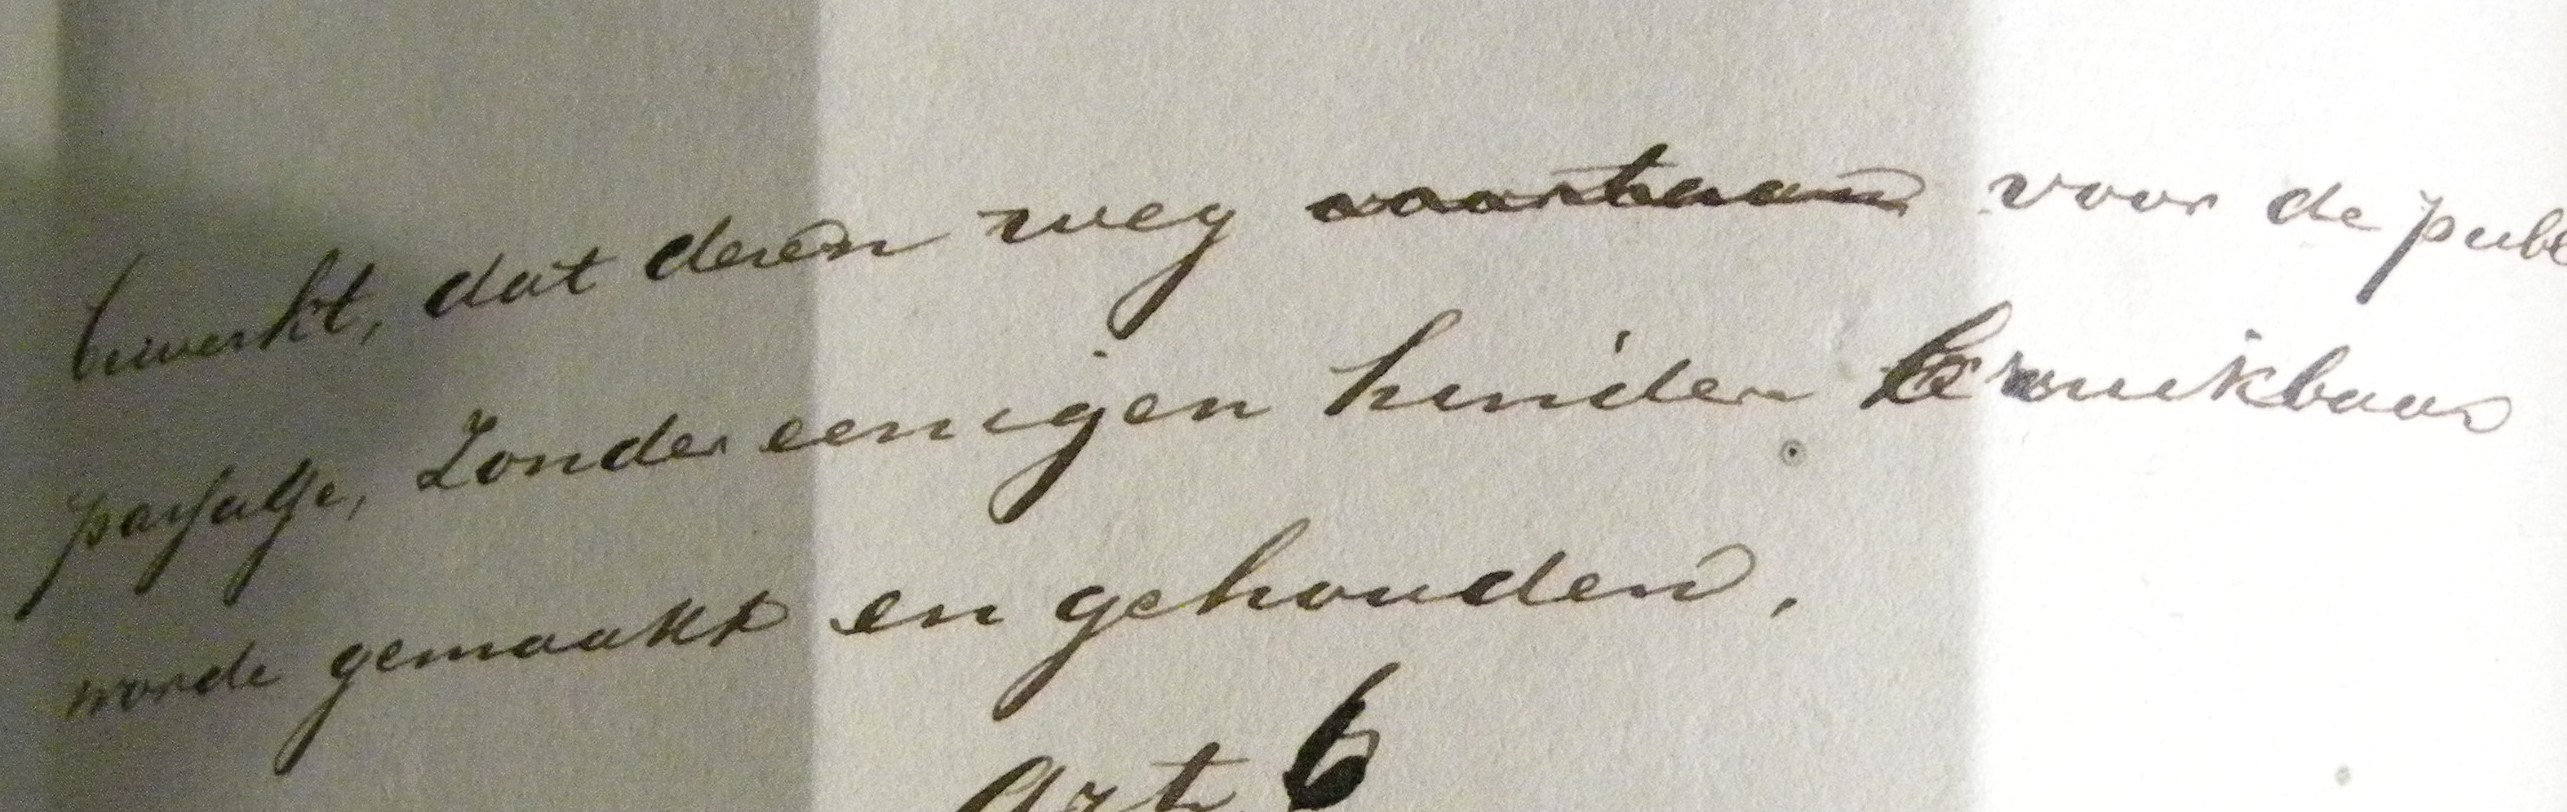 bewerkt, dat deren weg voortaan voor de publ
passatje, Zonder eenigen hinder bruikbaar
worde gemaakt en gehouden.
Art 6